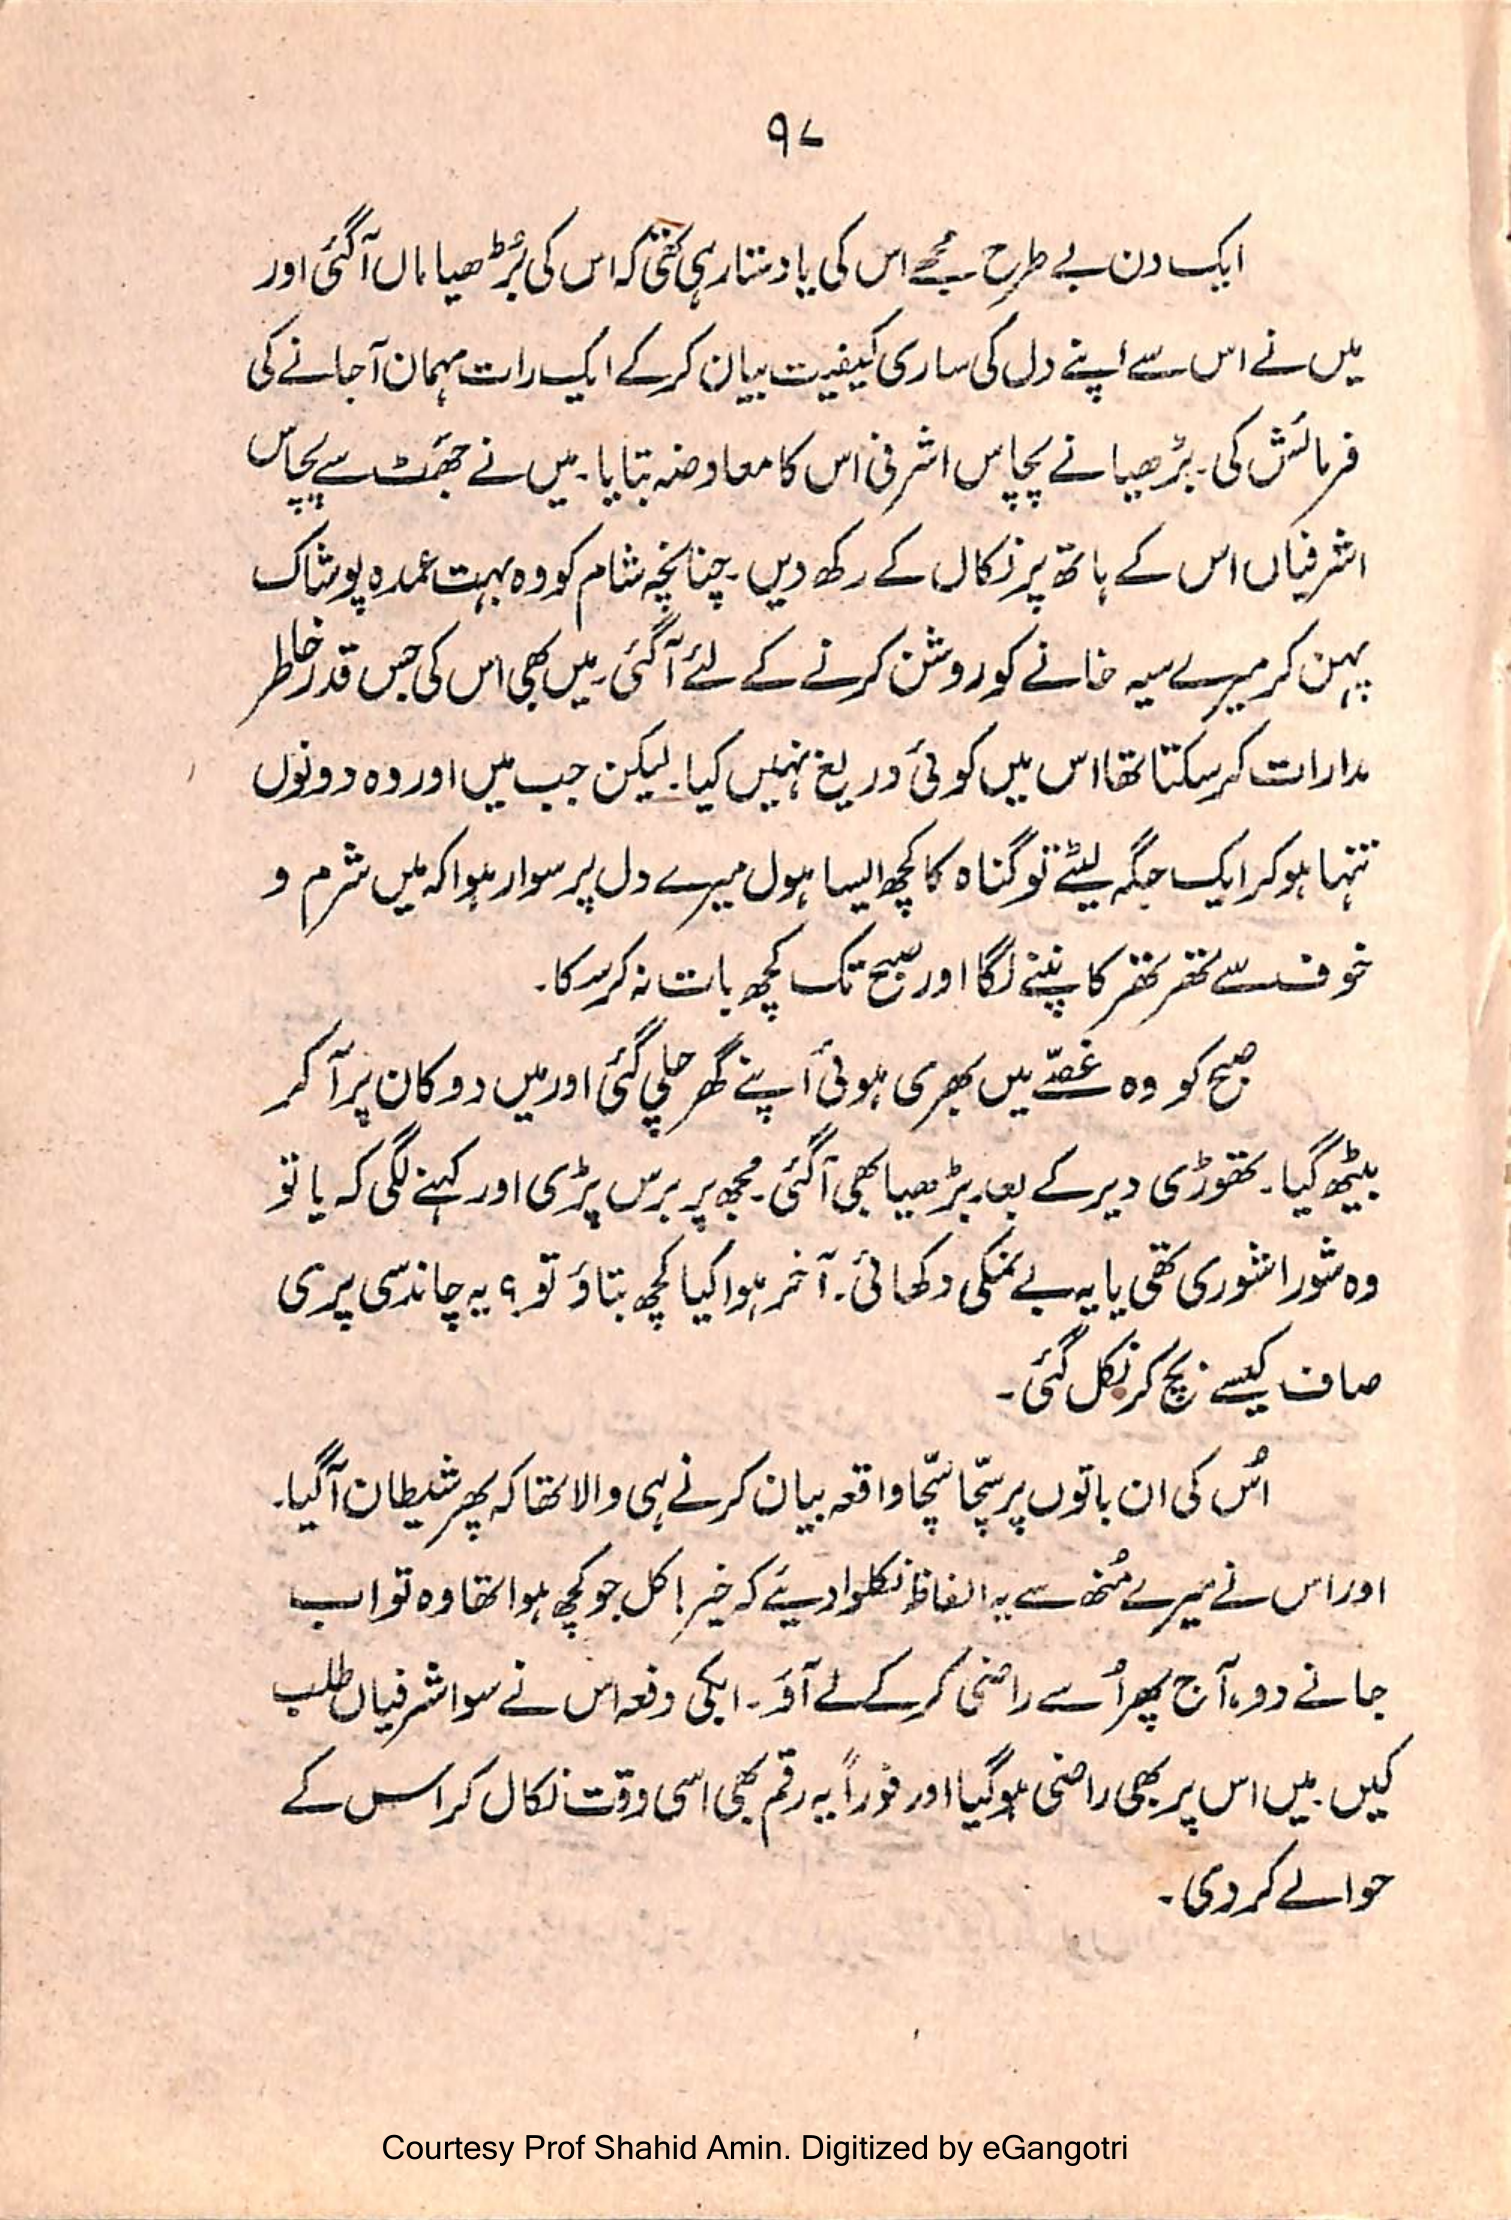 ۹۷
ایک دن بے طرح مجھے اس کی یاد ستا رہی تھی کہ اس کی بُڑھیا ماں آگئی اور
میں نے اس سے اپنے دل کی ساری کیفیت بیان کرکے ایک رات مہمان آجانے کی
فرمائش کی۔ بڑھیا نے پچاس اشرفی اس کا معاوضہ بتایا۔ میں نے جھَٹ سے پچاس
اشرفیاں اس کے ہاتھ پر نکال کے رکھ دیں۔ چنانچہ شام کو وہ بہت عمدہ پوشاک
پہن کر میرے سیہ خانے کو روشن کرنے کے لئے آگئی۔ میں بھی اس کی جس قدر خاطر
مدارات کرسکتا تھا اس میں کوئی دریغ نہیں کیا۔ لیکن جب میں اور وہ دونوں
تنہا ہوکر ایک جگہ لیٹے تو گناہ کا کچھ ایسا ہول میرے دل پر سوار ہوا کہ میں شرم و
خوف سے تھر تھر کانپنے لگا اور صبح تک کچھ بات نہ کرسکا۔
صبح کو وہ غصّے میں بھری ہوئی اپنے گھر چلی گئی اور میں دوکان پر آکر
بیٹھ گیا۔ تھوڑی دیر کے بعد بڑھیا بھی آگئی۔ مجھ پر برس پڑی اور کہنے لگی کہ یا تو
وہ شورا شوری تھی یا یہ بے نمکی دکھائی۔ آخر ہوا کیا کچھ بتاؤ تو؟ یہ چاند سی پری
صاف کیسے بچ کر نکل گئی۔
اُس کی ان باتوں پر سچّا سچّا واقعہ بیان کرنے ہی والا تھا کہ پھر شیطان آگیا۔
اور اس نے میرے مُنھ سے یہ الفاظ نکلوا دیئے کہ خیر! کل جو کچھ ہوا تھا وہ تو اب
جانے دو، آج پھر اُسے راضی کرکے لے آؤ۔ ابکی دفعہ اس نے سو اشرفیاں طلب
کیں۔ میں اس پر بھی راضی ہوگیا اور فوراً یہ رقم بھی اسی وقت نکال کر اس کے
حوالے کردی۔
Courtesy Prof Shahid Amin. Digitized by eGangotri